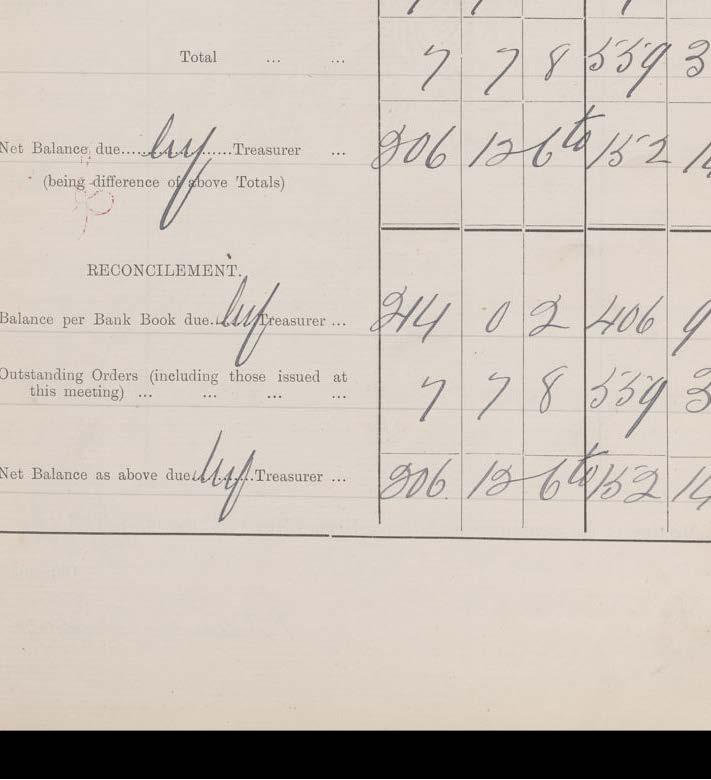 Total ... ... 7 7 8 559 3
Net Balance due......by......Treasurer ... 206 12 6 to 152 14
(being difference of above Totals)
RECONCILEMENT.
Balance per Bank Book due..by..Treasurer ... 214 0 2 406 9
Outstanding Orders (including those issued at
this meeting) ... ... ... ... 7 7 8 559 3
Net Balance as above due..by....Treasurer ... 206 12 6 to 152 14